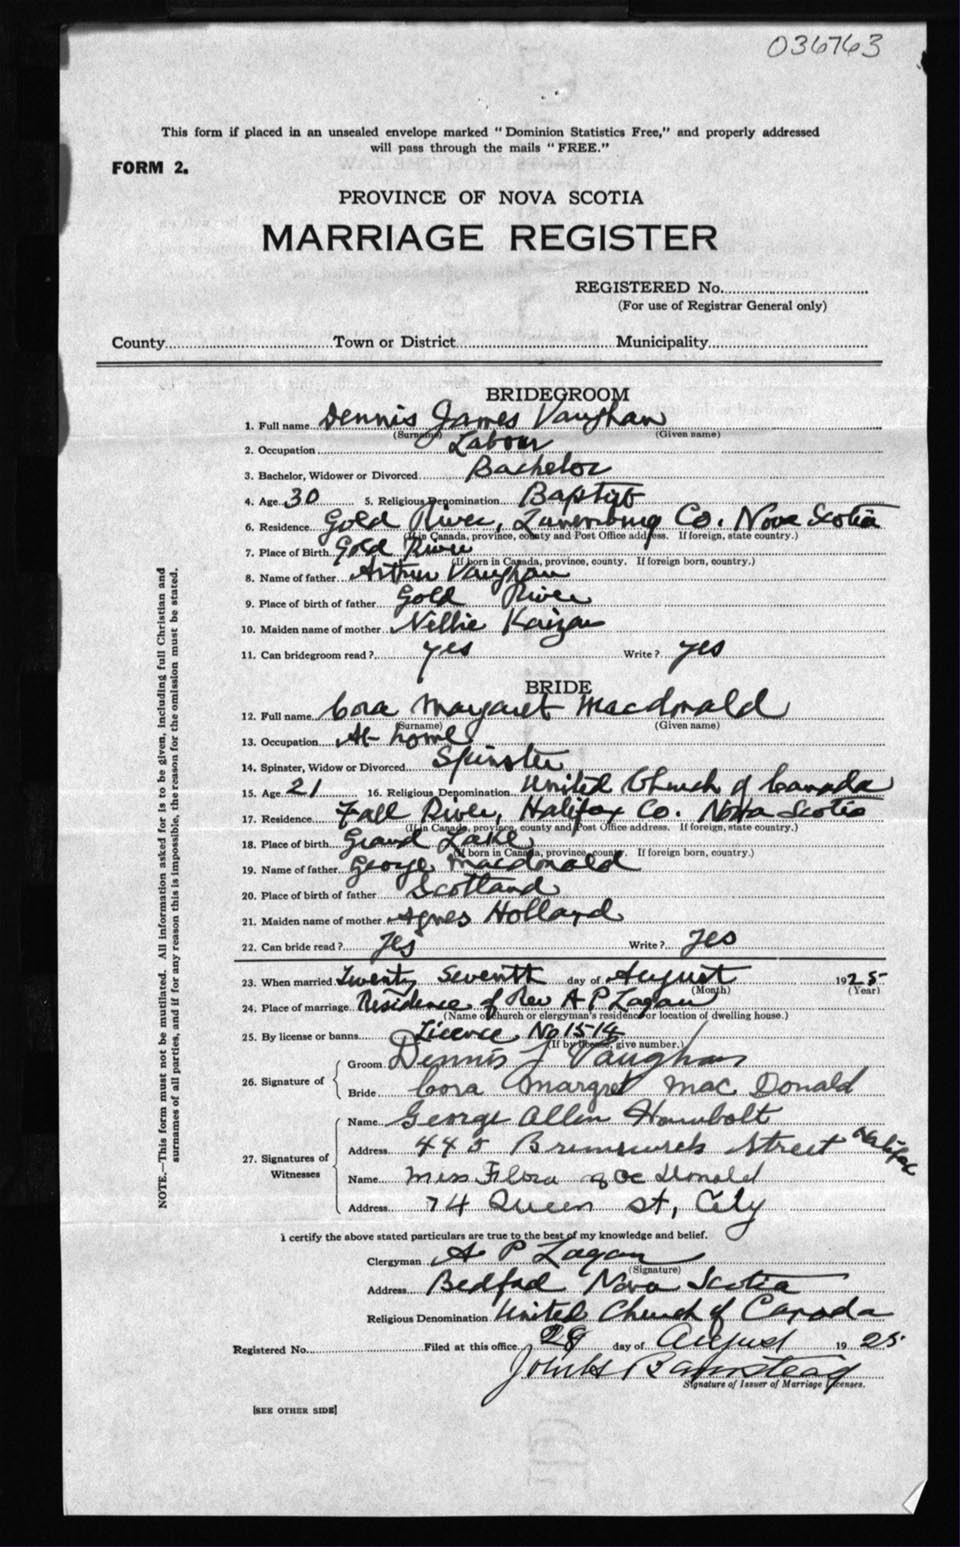 036763
This form if placed in an unsealed envelope marked "Dominion Statistics Free," and properly addressed
will pass through the mails "FREE."
FORM 2.
PROVINCE OF NOVA SCOTIA
MARRIAGE REGISTER
REGISTERED No.
(For use of Registrar General only)
County Town or District Municipality
BRIDEGROOM
1. Full name Dennis James Vaughan
(Surname) (Given name)
2. Occupation Labour
3. Bachelor, Widower or Divorced Bachelor
4. Age 30 5. Religious Denomination Baptist
6. Residence Gold River, Lunenburg Co. Nova Scotia
(If in Canada, province, county and Post Office address. If foreign, state country.)
7. Place of Birth Gold River
(If born in Canada, province, county. If foreign born, country.)
8. Name of father Arthur Vaughan
9. Place of birth of father Gold River
10. Maiden name of mother Nellie
11. Can bridegroom read? yes Write? yes
BRIDE
12. Full name Cora Margaret Macdonald
(Surname) (Given name)
13. Occupation At home
14. Spinster, Widow or Divorced Spinster
15. Age 21 16. Religious Denomination United Church of Canada
17. Residence Fall River, Halifax Co. Nova Scotia
(If in Canada, province, county and Post Office address. If foreign, state country.)
18. Place of birth Grand Lake
(If born in Canada, province, county If foreign born, country.)
19. Name of father George Macdonald
20. Place of birth of father Scotland
21. Maiden name of mother Agnes Holland
22. Can bride read? Yes Write? Yes
23. When married Twenty Seventh day of August 1925
(Month) (Year)
24. Place of marriage Residence of Rev A P Logan
(Name of church or clergyman's residence or location of dwelling house.)
25. By license or banns Licence No 1514
(If by license, give number.)
26. Signature of
Groom Dennis J Vaughan
Bride Cora Margret Mac Donald
27. Signatures of Witnesses
Name George Allen
Address 445 Brunswick Street Halifax
Name Miss Flora Mac Donald
Address 74 Queen St, City
I certify the above stated particulars are true to the best of my knowledge and belief.
Clergyman A P Logan
(Signature)
Address Bedford Nova Scotia
Religious Denomination United Church of Canada
Registered No. Filed at this office 28 day of August 1925
Barnstead
Signature of Issuer of Marriage Licenses.
[SEE OTHER SIDE]
NOTE.—This form must not be mutilated. All information asked for is to be given, including full Christian and
surnames of all parties, and if for any reason this is impossible, the reason for the omission must be stated.